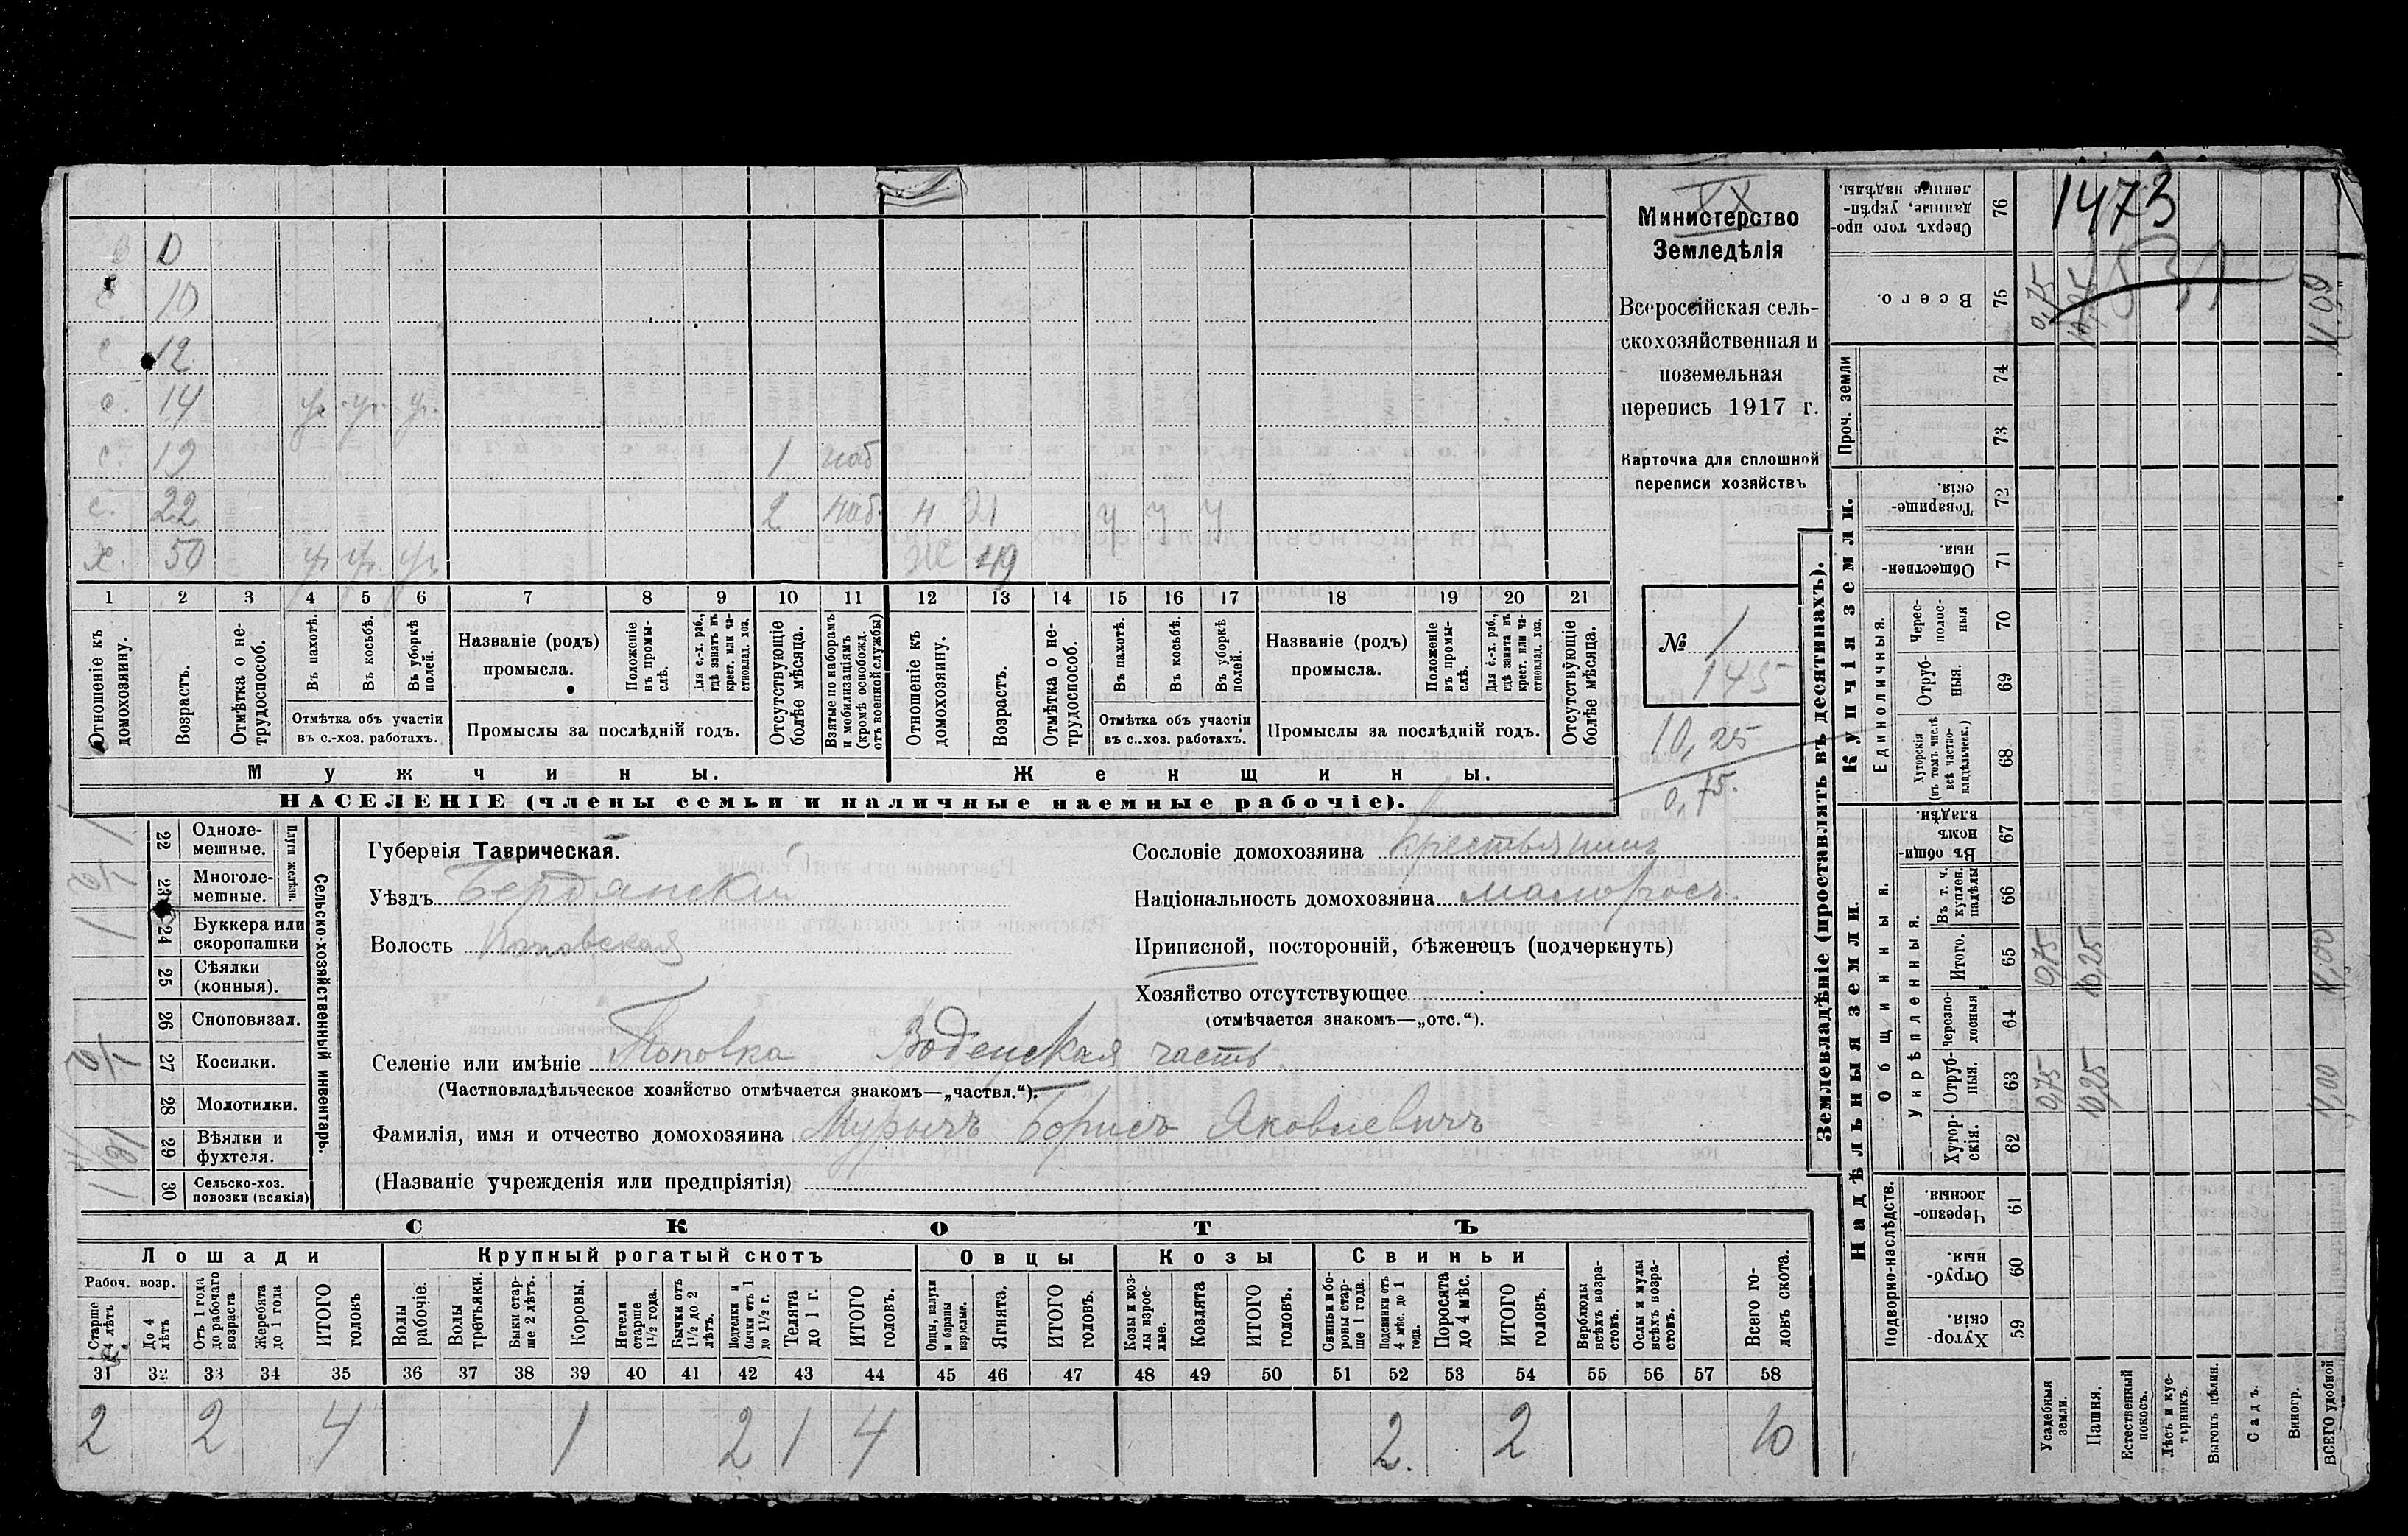 1473
XX
Министерство
Земледѣлія
Всероссійская сель-
скохозяйственная и
поземельная
перепись 1917 г.
Карточка для сплошной
переписи хозяйствъ
№ 1
145
10,25
0,75.
10
12
с. 14 ур. ур. ур.
с. 19 1 наб
с. 22 2 наб. н 21 у у у
х. 50 ур ур. ур Ж 49
1 2 3 4 5 6 7 8 9 10 11 12 13 14 15 16 17 18 19 20 21
Отношеніе къ домохозяину.
Возрастъ.
Отмѣтка о не-трудоспособ.
Въ пахотѣ.
Въ косьбѣ.
Въ уборкѣ полей.
Отмѣтка объ участіи
въ с.-хоз. работахъ.
Названіе (родъ)
промысла.
Положеніе въ промы-слѣ.
Для с.-х. раб., гдѣ занятъ въ крест. или ча-стновлад. хоз.
Промыслы за послѣдній годъ.
Отсутствующіе болѣе мѣсяца.
Взятые по наборамъ и мобилизаціямъ (кромѣ освобожд. отъ военной службы)
Отношеніе къ домохозяину.
Возрастъ.
Отмѣтка о не-трудоспособ.
Въ пахотѣ.
Въ косьбѣ.
Въ уборкѣ полей.
Отмѣтка объ участіи
въ с..хоз. работахъ.
Названіе (родъ)
промысла.
Положеніе въ промы-слѣ.
Для с.-х. раб., гдѣ занята въ крест. или ча-стновлад. хоз.
Промыслы за послѣдній годъ.
Отсутствующіе болѣе мѣсяца.
Мужчины. Женщины.
НАСЕЛЕНІЕ (члены семьи и наличные наемные рабочіе).
Сельско-хозяйственный инвентарь.
Плуги желѣзн.
22 Одноле-мешные. 1
23 Многоле-мешные. 1/2
24 Буккера или скоропашки 1
25 Сѣялки (конныя).
26 Сноповязал.
27 Косилки. 1/2
28 Молотилки.
29 Вѣялки и фухтеля.
30 Сельско-хоз. повозки (всякія) 1
Губернія Таврическая.
Уѣздъ Бердянскій
Волость Поповская
Сословіе домохозяина крестьянинъ
Національность домохозяина малороссъ.
Приписной, посторонній, бѣженецъ (подчеркнуть)
Хозяйство отсутствующее
(отмѣчается знакомъ—„отс.“).
Селеніе или имѣніе Поповка Воденская часть
(Частновладѣльческое хозяйство отмѣчается знакомъ—„частвл.“).
Фамилія, имя и отчество домохозяина Мурычъ Борисъ Яковлевичъ
(Названіе учрежденія или предпріятія)
СКОТЪ
Лошади Крупный рогатый скотъ Овцы Козы Свиньи
Рабоч. возр.
Старше 4 лѣтъ
До 4 лѣтъ
Отъ 1 года до рабочаго возраста
Жеребята до 1 года
ИТОГО головъ
Волы рабочіе.
Волы третьяки.
Быки стар-ше 2 лѣтъ.
Коровы.
Нетели старше 1½ года.
Бычки отъ 1½ до 2 лѣтъ.
Подтелки и бычки отъ 1 до 1½ г.
Телята до 1 г.
ИТОГО головъ.
Овцы, валухи и бараны взрослые.
Ягнята.
ИТОГО головъ.
Козы и коз-лы взрос-лые.
Козлята
ИТОГО головъ.
Свиньи и бо-ровы стар-ше 1 года.
Подсвинки отъ 4 мѣс. до 1 года.
Поросята до 4 мѣс.
ИТОГО головъ.
Верблюды всѣхъ возра-стовъ.
Ослы и мулы всѣхъ возра-стовъ.
Всего го-ловъ скота.
31 32 33 34 35 36 37 38 39 40 41 42 43 44 45 46 47 48 49 50 51 52 53 54 55 56 57 58
2 2 4 1 2 1 4 2. 2 10
Землевладѣніе (проставлять въ десятинахъ).
Надѣльныя земли. Купчія земли. Проч. земли
Подворно-наслѣдств.
Общинныя.
Укрѣпленныя.
Единоличныя.
Сверхъ того про-данные, укрѣп-ленные надѣлы. 76
Всего. 75 0,75 10,25 11,00
74
73
Товарище-скія. 72
Обществен-ныя. 71
Черес-полос-ныя 70
Отруб-ныя. 69
Хуторскія (въ томъ числѣ всѣ частно-владѣльческ.) 68
Въ общи-номъ владѣн. 67
Въ т. ч. куплен. надѣлы 66
Итого. 65 0,75 10,25 11,00
Черезпо-лосныя 64
Отруб-ныя. 63 0,75 10,25 11,00
Хутор-скія. 62
Черезпо-лосныя. 61
Отруб-ныя. 60
Хутор-скія. 59
Усадебныя земли.
Пашня.
Естественный покосъ.
Лѣсъ и кус-тарникъ.
Выгонъ цѣлин.
Садъ.
Виногр.
ВСЕГО удобной